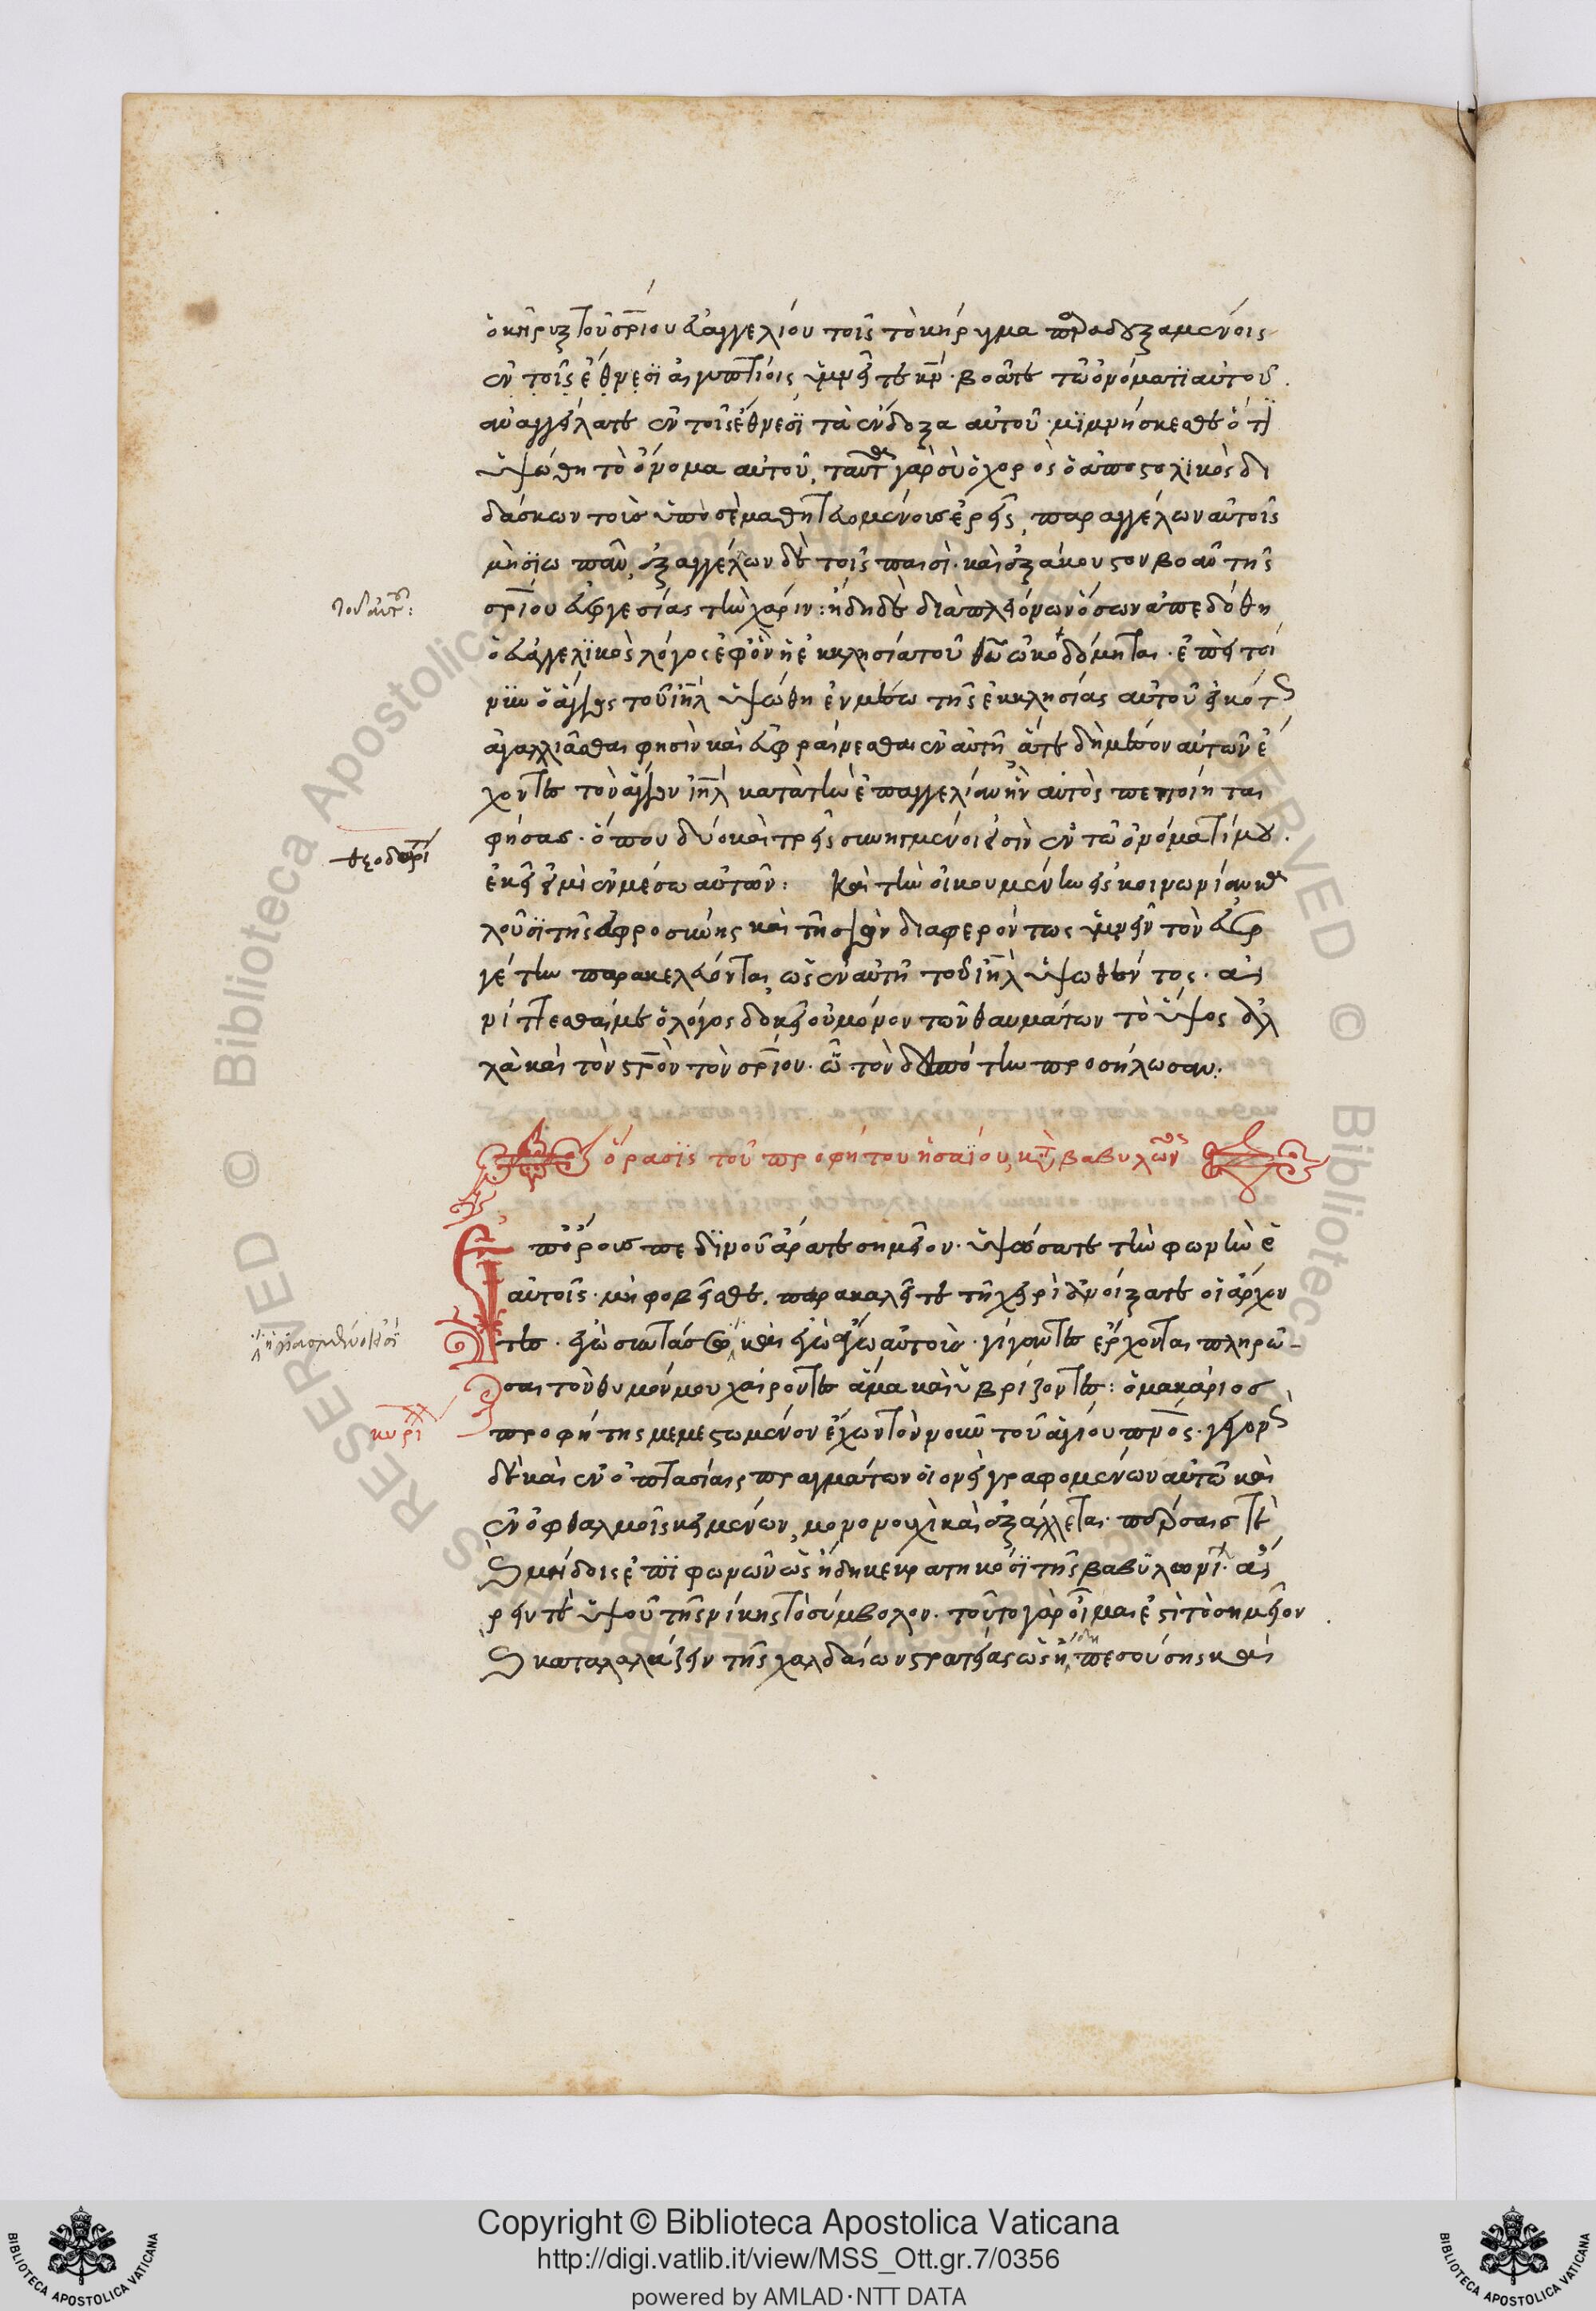 ὁ κῆρυξ τοῦ σρίου εὐαγγελίου τοῖς τὸ κήρυγμα προσδεξαμένοις
ἐν τοῖς ἔθνεσι αἰγυπτίοις ὑμνεῖτε κν̄· βοᾶτε τῶ ὀνόματι αὐτοῦ.
ἀναγγείλατε ἐν τοῖς ἔθνεσι τὰ ἔνδοξα αὐτοῦ· μιμνήσκεσθε ὅτι
ὑψώθη τὸ ὄνομα αὐτοῦ, ταῦτα γὰρ σὺ ὁ χορὸς ὁ ἀποστολικὸς δι
δάσκων τοὺς ὑπὸ σὲ μαθητευομένους ἐρεῖς, παραγγέλων αὐτοῖς
μὴ σιωπᾶν, ἐξαγγέλων δὲ τοῖς πᾶσι· καὶ ἐξάκουστον βοᾶν τῆς
σρίου εὐεργεσίας τὴν χάριν: ἤδη δὲ διὰ πλειόνων ὅσων ἀπεδόθη
ὁ εὐαγγελικὸς λόγος ἐφ' ὃν ἡ ἐκκλησία τοῦ θῦ ὠκοδόμηται· ἐπεὶ τοί
νυν ὁ ἅγιος τοῦ ιηλ ὑψώθη ἐν μέσω τῆς ἐκκλησίας αὐτοῦ εἰκότως
ἀγαλλιᾶσθαι φησὶν καὶ εὐφραίνεσθαι ἐν αὐτῆ, ἅτε δὴ μέσον αὐτῶν ἔ
χοντες τὸν ἅγιον ιηλ κατὰ τὴν ἐπαγγελίαν ἣν αὐτὸς πεποίηται
φήσας· ὅπου δύο καὶ τρεῖς συνηγμένοι εἰσὶν ἐν τῶ ὀνόματί μου.
ἐκεῖ εἰμὶ ἐν μέσω αὐτῶν: Καὶ τὴν οἰκουμένην εἰς κοινωνίαν κα
λοῦσι τῆς εὐφροσύνης καὶ τὴν σιὼν διαφερόντως ὑμνεῖν τὸν εὐερ
γέτην παρακελεύονται, ὡς ἐν αὐτῆ τοῦ ιηλ ὑψωθέντος· αἰ
νίττεσθαί με ὁ λόγος δοκεῖ οὐ μόνον τῶν θαυμάτων τὸ ὕψος ἀλ
λὰ καὶ τὸν στρὸν τὸν σρίον· ὧ τὸν δεσπότην προσήλωσαν:
ὅρασις τοῦ προφήτου ἡσαΐου, κατὰ βαβυλῶνος
Ἐπ' ὄρους πεδινοῦ ἄρατε σημεῖον· ὑψώσατε τὴν φωνὴν ἑ
αὐτοῖς· μὴ φοβεῖσθε. παρακαλεῖτε τῆ χειρὶ ἀνοίξατε οἱ ἄρχον
τες· ἐγὼ συντάσσω, καὶ ἐγὼ ἄγω αὐτούς· γίγαντες ἔρχονται πληρῶ-
σαι τὸν θυμόν μου χαίροντες ἅμα καὶ ὑβρίζοντες: ὁ μακάριος
προφήτης μεμεστωμένον ἔχων τὸν νοῦν τοῦ ἁγίου πνος· γεγονὼς
δὲ καὶ ἐν ὀπτασίαις πραγμάτων οἱονεὶ γραφομένων αὐτῶ καὶ
ἐν ὀφθαλμοῖς κειμένων, μονονουχὶ καὶ ἐξάλλεται· πέρσαις τὲ
καὶ μήδοις ἐπιφωνῶν ὡς ἤδη κεκρατηκόσι τῆς βαβυλωνί· αἴ
ρειν τὲ ὑψοῦ τῆς νίκης τὸ σύμβολον· τοῦτο γὰρ οἶμαι ἐστὶ τὸ σημεῖον.
καὶ καταλαλάζειν τῆς χαλδαίων στρατείας ὡς ἤδη πεσούσης καὶ
θεοδωρί
κυρί
Copyright © Biblioteca Apostolica Vaticana
http://digi.vatlib.it/view/MSS_Ott.gr.7/0356
powered by AMLAD·NTT DATA
BIBLIOTECA APOSTOLICA VATICANA
BIBLIOTECA APOSTOLICA VATICANA